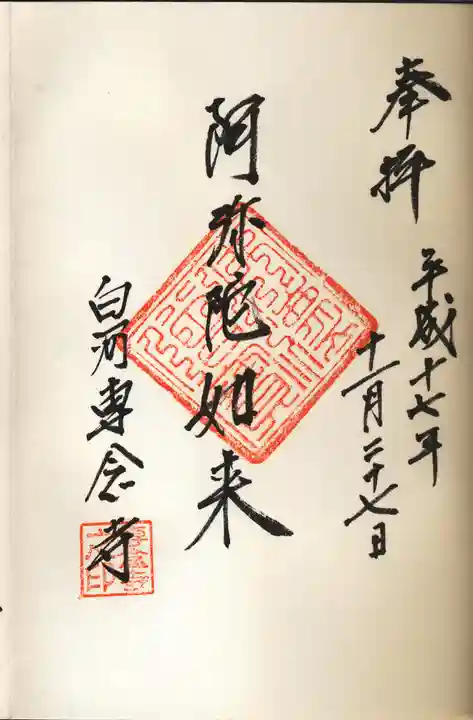 奉拝
平成十七年
十一月二十七日
阿弥陀如来
白河専念寺